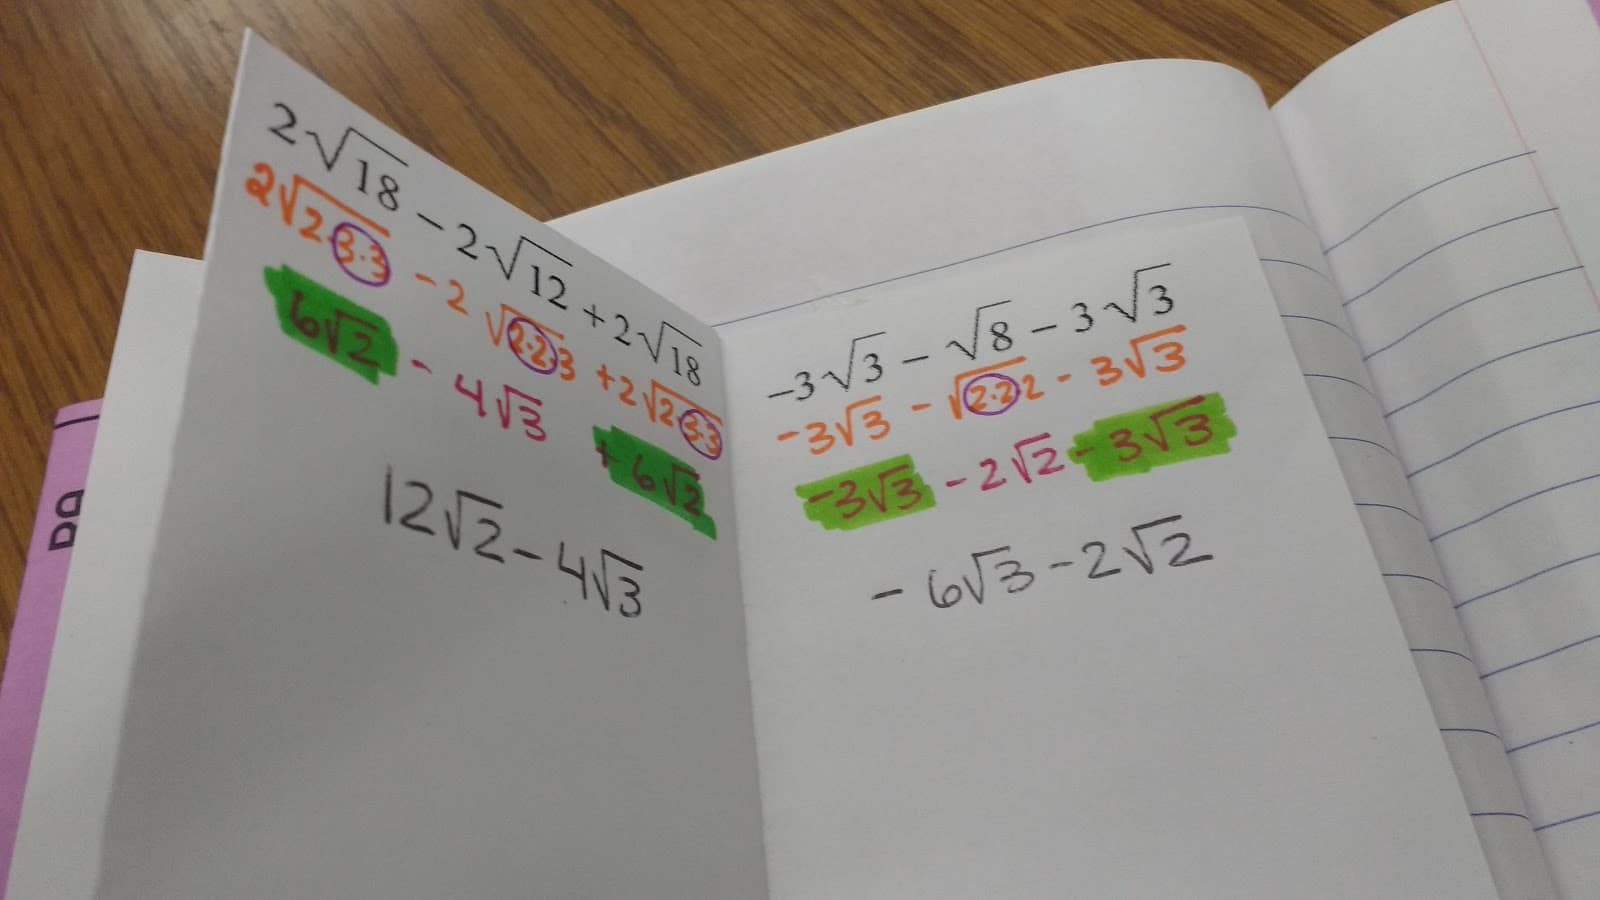 2√18 - 2√12 + 2√18
2√2·3·3 - 2√2·2·3 + 2√2·3·3
6√2 - 4√3 + 6√2
12√2 - 4√3
-3√3 - √8 - 3√3
-3√3 - √2·2·2 - 3√3
-3√3 - 2√2 - 3√3
-6√3 - 2√2